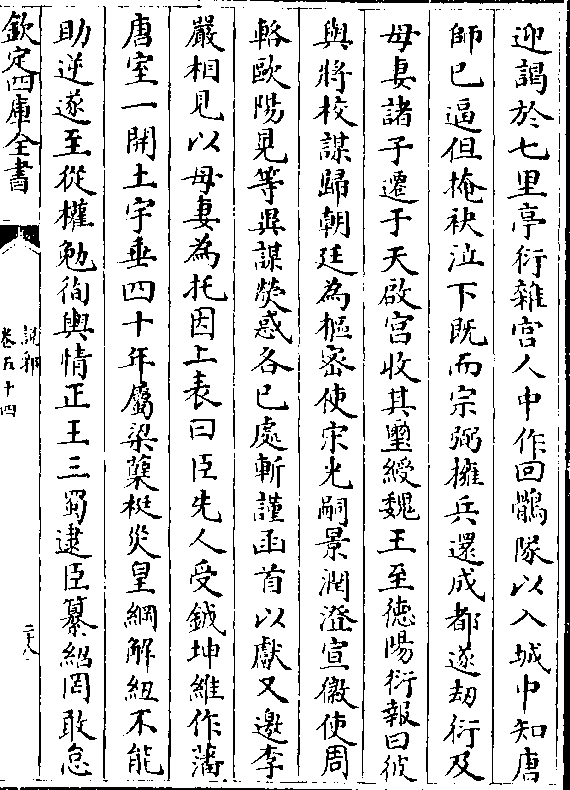 迎謁於七里亭衍雜宫人中作回鶻隊以入城中知唐
師已逼但掩袂泣下既而宗弼擁兵還成都遂刧衍及
母妻諸子遷于天啟宫收其璽綬魏王至徳陽衍報曰彼
與將校謀歸朝廷為樞密使宋光嗣景潤澄宣徽使周
輅歐陽晃等異謀熒惑各已處斬謹函首以獻又邀李
嚴相見以母妻為托因上表曰臣先人受鉞坤維作藩
唐室一開土宇垂四十年屬梁蘖梃災皇綱解紐不能
助逆遂至從權勉徇輿情正王三蜀逮臣纂紹罔敢怠
欽定四庫全書
說郛
卷五十四
二十八